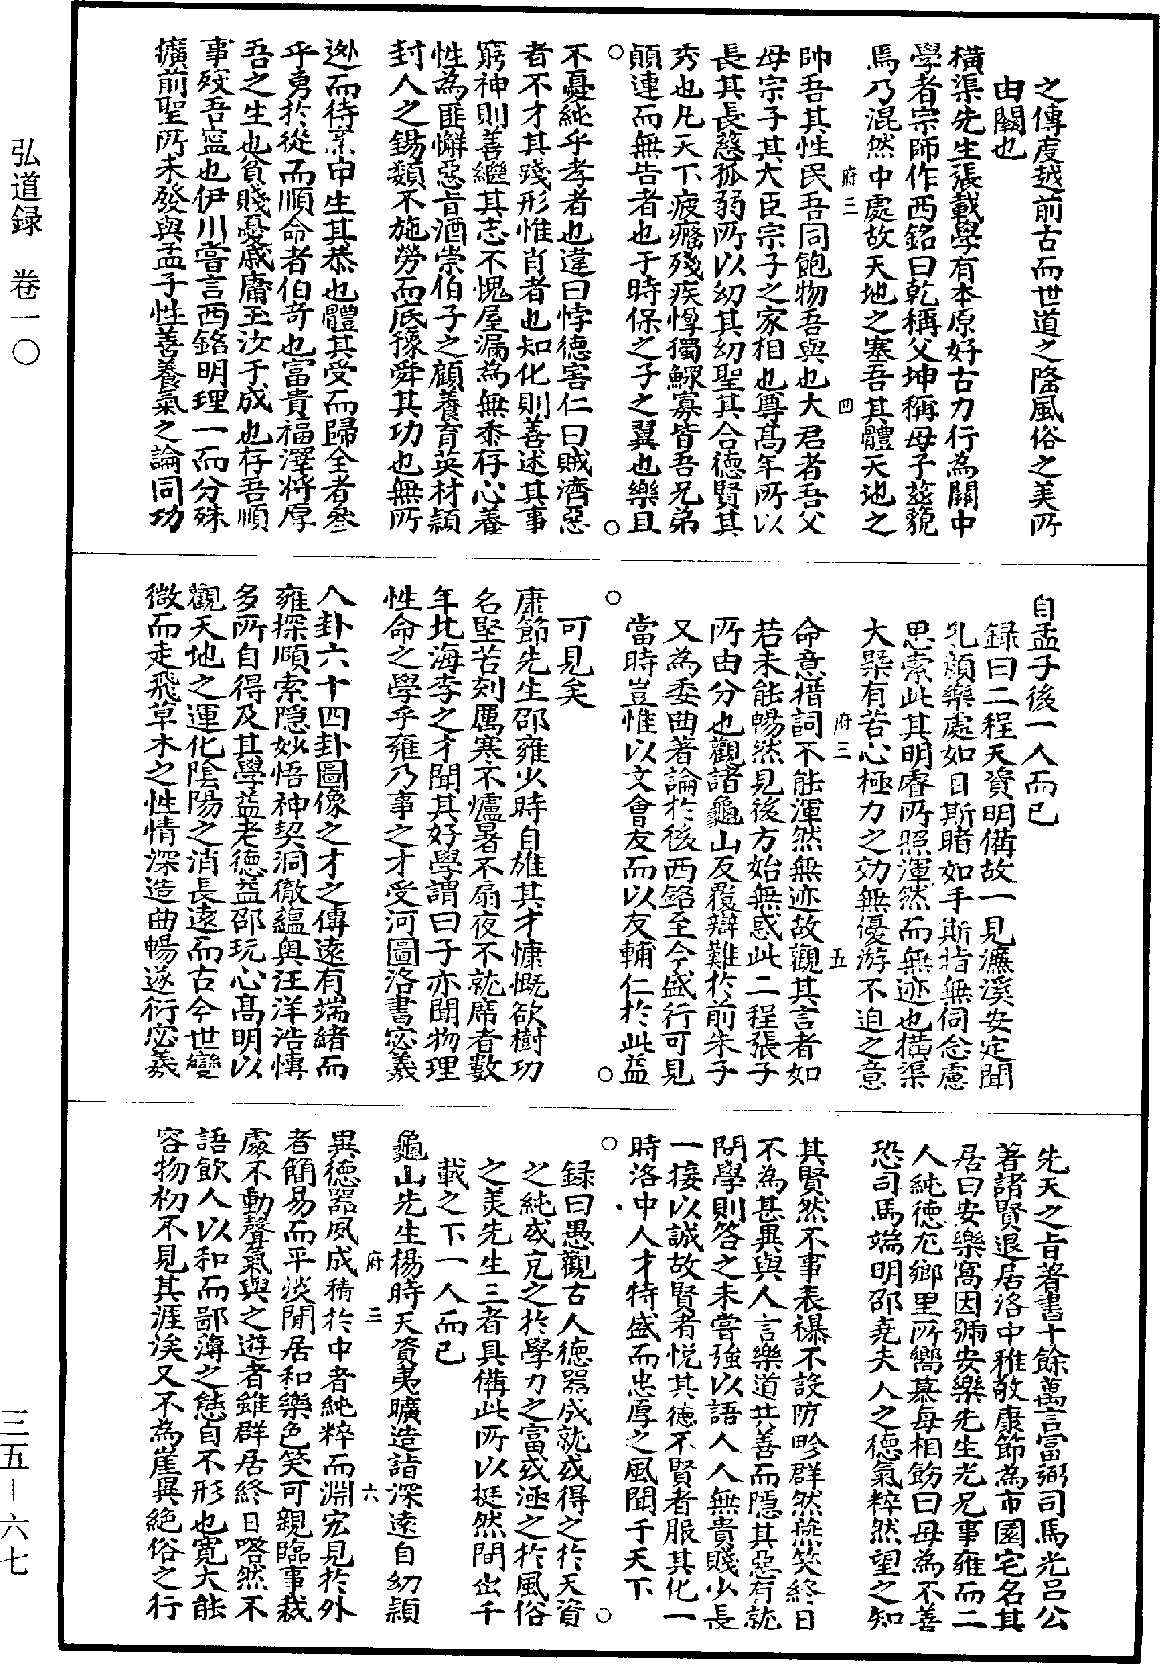 弘道録　卷一〇
三五－六七
之傳度越前古而世道之隆風俗之美所
由關也
橫渠先生張載學有本原好古力行為關中
學者宗師作西銘曰乾稱父坤稱母子茲藐
焉乃混然中處故天地之塞吾其體天地之
府三　四
帥吾其性民吾同飽物吾與也大君者吾父
母宗子其大臣宗子之家相也尊髙年所以
長其長慈孤弱所以幼其幼聖其合德賢其
秀也凡天下疲癃殘疾惸獨鰥寡皆吾兄弟
顛連而無告者也于時保之子之翼也樂且
不憂純乎孝者也違曰悖德害仁曰賊濟惡
者不才其踐形惟肖者也知化則善述其事
窮神則善繼其志不愧屋漏為無忝存心養
性為匪懈惡旨酒崇伯子之顧養育英材潁
封人之錫類不施勞而底豫舜其功也無所
逃而待烹申生其恭也體其受而歸全者參
乎勇於從而順命者伯奇也富貴福澤將厚
吾之生也貧賤憂戚庸玉汝于成也存吾順
事殁吾寧也伊川嘗言西銘明理一而分殊
擴前聖所未發與孟子性善養氣之論同功
自孟子後一人而已
録曰二程天資明備故一見濂溪安定聞
孔顏樂處如目斯睹如手斯指無伺念慮
思索此其明睿所照渾然而無迹也橫渠
大槩有苦心極力之効無優游不迫之意
府三　五
命意措詞不能渾然無迹故觀其言者如
若未能暢然見後方始無惑此二程張子
所由分也觀諸龜山反覆辯難於前朱子
又為委曲著論於後西銘至今盛行可見
當時豈惟以文會友而以友輔仁於此益
可見矣
康節先生邵雍少時自雄其才慷慨欲樹功
名堅苦刻厲寒不爐暑不扇夜不就席者數
年北海李之才聞其好學謂曰子亦聞物理
性命之學乎雍乃事之才受河圖洛書宓羲
八卦六十四卦圖像之才之傳遠有端緒而
雍探賾索隐妙悟神契洞徹蘊奧汪洋浩愽
多所自得及其學益老德益邵玩心髙明以
觀天地之運化陰陽之消長遠而古今世變
微而走飛草木之性情深造曲暢遂衍宓羲
先天之旨著書十餘萬言富弼司馬光吕公
著諸賢退居洛中雅敬康節為市園宅名其
居曰安樂窩因號安樂先生光兄事雍而二
人純德尤鄉里所嚮慕每相飭曰毋為不善
恐司馬端明邵堯夫人之德氣粹然望之知
其賢然不事表襮不設防畛群然燕笑終日
不為甚異與人言樂道其善而隱其惡有就
問學則答之未嘗強以語人人無貴賤少長
一接以誠故賢者悦其德不賢者服其化一
時洛中人才特盛而忠厚之風聞于天下
録曰愚觀古人德器成就或得之於天資
之純或克之於學力之富或涵之於風俗
之美先生三者具備此所以挺然間出千
載之下一人而已
龜山先生楊時天資夷曠造詣深遠自幼穎
府三　六
異德器夙成積於中者純粹而淵宏見於外
者簡易而平淡閒居和樂色笑可親臨事裁
處不動聲氣與之遊者雖群居終日嗒然不
語飲人以和而鄙薄之態自不形也寛大能
容物初不見其涯涘又不為崖異絶俗之行